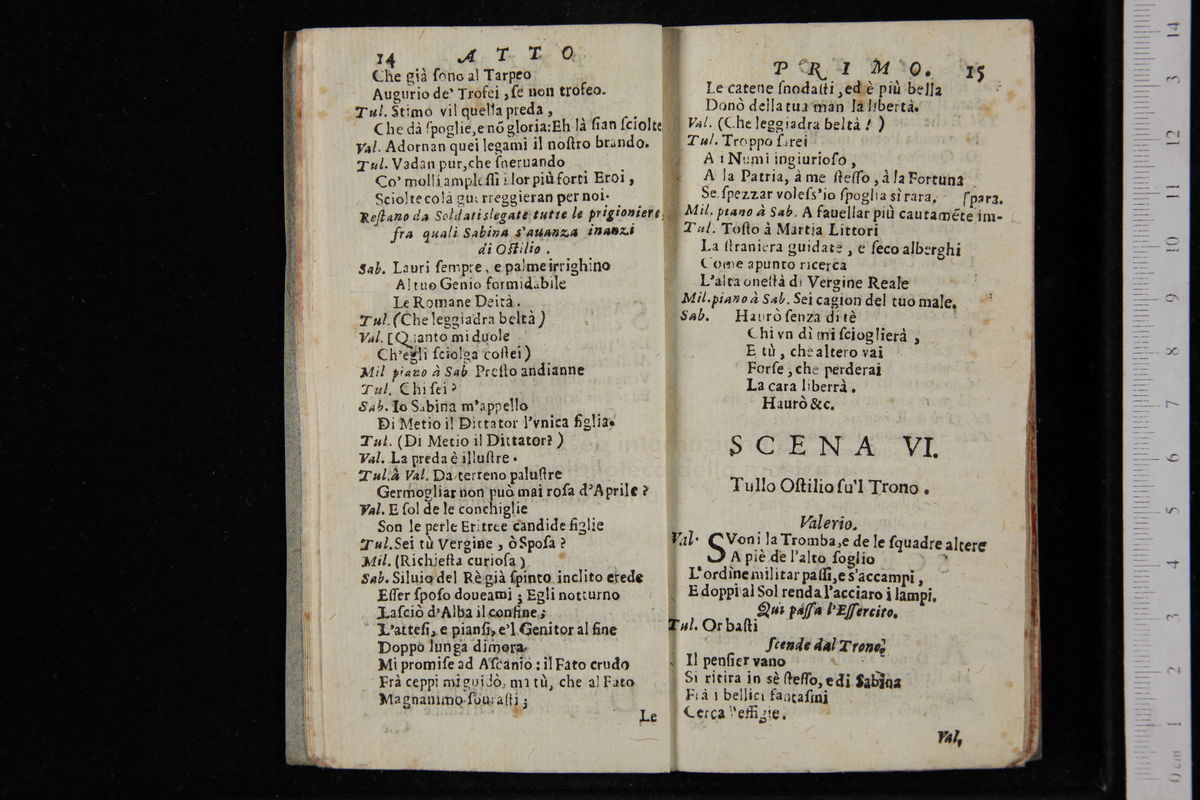 14 ATTO
Che già ſono al Tarpeo
Augurio de' Trofei, ſe non trofeo.
Tul. Stimo vil quella preda,
Che dà ſpoglie, e nõ gloria: Eh là ſian ſciolte
Val. Adornan quei legami il noſtro brando.
Tul. Vadan pur, che ſneruando
Co' molli ampleſſi i lor più forti Eroi,
Sciolte colà guerreggieran per noi.
Reſtano da Soldati slegate tutte le prigioniere,
fra quali Sabina s'auanza inanzi
di Oſtilio.
Sab. Lauri ſempre, e palme irrighino
Al tuo Genio formidabile
Le Romane Deità.
Tul. (Che leggiadra beltà)
Val. [Quanto mi duole
Ch'egli ſciolga coſtei)
Mil piano à Sab Preſto andianne
Tul. Chi ſei?
Sab. Io Sabina m'appello
Di Metio il Dittator l'vnica figlia.
Tul. (Di Metio il Dittator?)
Val. La preda è illuſtre.
Tul. à Val. Da terreno paluſtre
Germogliar non può mai roſa d'Aprile?
Val. E ſol de le conchiglie
Son le perle Eritree candide figlie
Tul. Sei tù Vergine, ò Spoſa?
Mil. (Richieſta curioſa)
Sab. Siluio del Rè già ſpinto inclito erede
Eſſer ſpoſo doueami; Egli notturno
Laſciò d'Alba il confine;
L'atteſi, e pianſi, e'l Genitor al fine
Doppo lunga dimora
Mi promiſe ad Aſcanio: il Fato crudo
Frà ceppi mi guidò, mà tù, che al Fato
Magnanimo ſouraſti;
Le
PRIMO. 15
Le catene ſnodaſti, ed è più bella
Donò della tua man la libertà.
Val. (Che leggiadra beltà!)
Tul. Troppo ſarei
A i Numi ingiurioſo,
A la Patria, à me ſteſſo, à la Fortuna
Se ſpezzar voleſs'io ſpoglia sì rara. ſpara.
Mil. piano à Sab. A fauellar più cautamẽte im-
Tul. Toſto à Martia Littori
La ſtraniera guidate, e ſeco alberghi
Come apunto ricerca
L'alta oneſtà di Vergine Reale
Mil. piano à Sab. Sei cagion del tuo male.
Sab. Haurò ſenza di tè
Chi vn dì mi ſcioglierà,
E tù, che altero vai
Forſe, che perderai
La cara liberrà.
Haurò &c.
SCENA VI.
Tullo Oſtilio ſu'l Trono.
Valerio.
Val. SVoni la Tromba, e de le ſquadre altere
A piè de l'alto ſoglio
L'ordine militar paſſi, e s'accampi,
E doppi al Sol renda l'acciaro i lampi.
Qui paſſa l'Eſſercito.
Tul. Or baſti
ſcende dal Trono.
Il penſier vano
Si ritira in sè ſteſſo, e di Sabina
Frà i bellici fantaſmi
Cerca l'effigie.
Val.